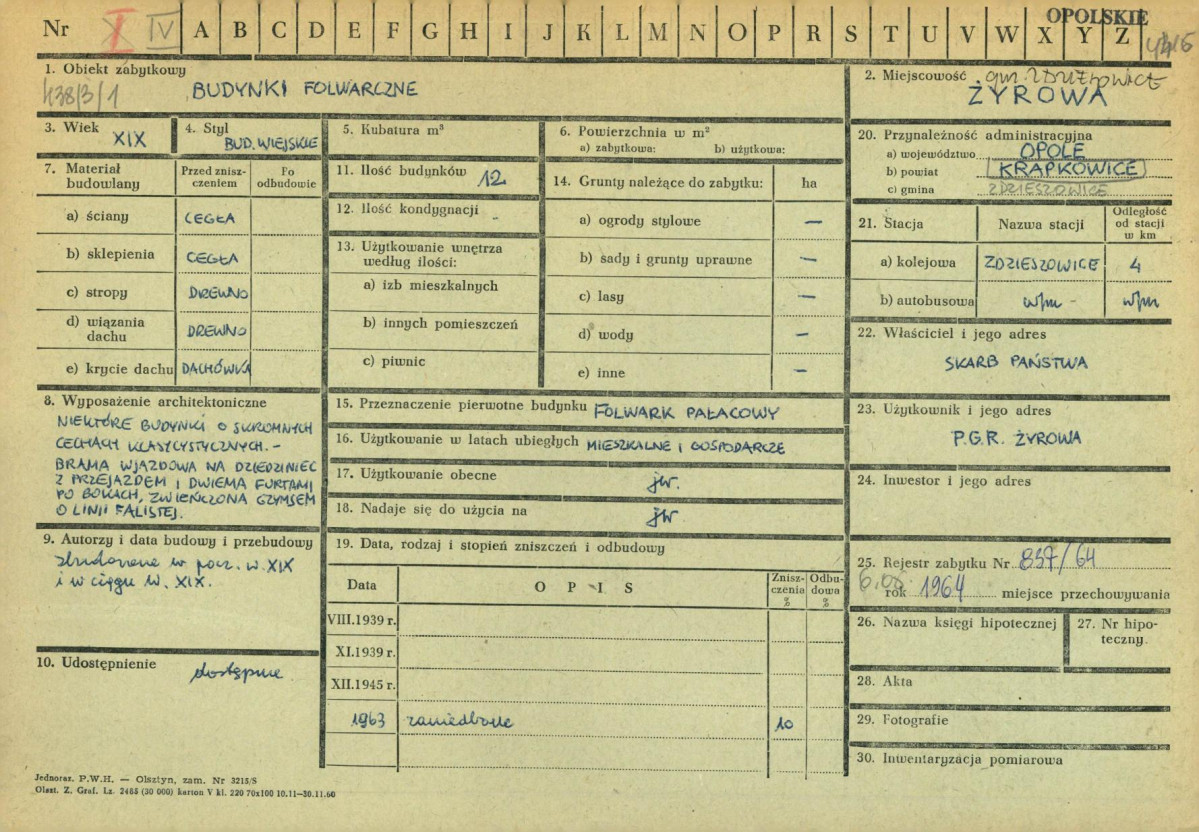 OPOLSKIE
Nr I IV A B C D E F G H I J K L M N O P R S T U V W X Y Z
1. Obiekt zabytkowy
438/3/1
BUDYNKI FOLWARCZNE
2. Miejscowość gm. ZDZIESZOWICE
ŻYROWA
3. Wiek XIX
4. Styl BUD. WIEJSKIE
5. Kubatura m³
6. Powierzchnia w m²
a) zabytkowa: b) użytkowa:
7. Materiał budowlany
Przed zniszczeniem
Po odbudowie
a) ściany CEGŁA
b) sklepienia CEGŁA
c) stropy DREWNO
d) wiązania dachu DREWNO
e) krycie dachu DACHÓWKA
8. Wyposażenie architektoniczne
NIEKTÓRE BUDYNKI O SKROMNYCH
CECHACH KLASYCYSTYCZNYCH. -
BRAMA WJAZDOWA NA DZIEDZINIEC
Z PRZEJAZDEM I DWIEMA FURTAMI
PO BOKACH, ZWIEŃCZONA GZYMSEM
O LINII FALISTEJ.
9. Autorzy i data budowy i przebudowy
zbudowane w pocz. w. XIX
i w ciągu w. XIX.
10. Udostępnienie
dostępne
11. Ilość budynków 12
12. Ilość kondygnacji
13. Użytkowanie wnętrza
według ilości:
a) izb mieszkalnych
b) innych pomieszczeń
c) piwnic
14. Grunty należące do zabytku: ha
a) ogrody stylowe —
b) sady i grunty uprawne —
c) lasy —
d) wody —
e) inne —
15. Przeznaczenie pierwotne budynku FOLWARK PAŁACOWY
16. Użytkowanie w latach ubiegłych MIESZKALNE I GOSPODARCZE
17. Użytkowanie obecne jw.
18. Nadaje się do użycia na jw
19. Data, rodzaj i stopień zniszczeń i odbudowy
Data OPIS Zniszczenia % Odbudowa %
VIII.1939 r.
XI.1939 r.
XII.1945 r.
1963 zaniedbane 10
20. Przynależność administracyjna
a) województwo OPOLE
b) powiat KRAPKOWICE
c) gmina ZDZIESZOWICE
21. Stacja Nazwa stacji Odległość od stacji w km
a) kolejowa ZDZIESZOWICE 4
b) autobusowa w/m - w/m
22. Właściciel i jego adres
SKARB PAŃSTWA
23. Użytkownik i jego adres
P.G.R. ŻYROWA
24. Inwestor i jego adres
25. Rejestr zabytku Nr 837/64
6.08 rok 1964 miejsce przechowywania
26. Nazwa księgi hipotecznej
27. Nr hipoteczny.
28. Akta
29. Fotografie
30. Inwentaryzacja pomiarowa
Jednoraz. P.W.H. — Olsztyn, zam. Nr 3215/S
Olszt. Z. Graf. Lz. 2465 (30 000) karton V kl. 220 70x100 10.11—30.11.60